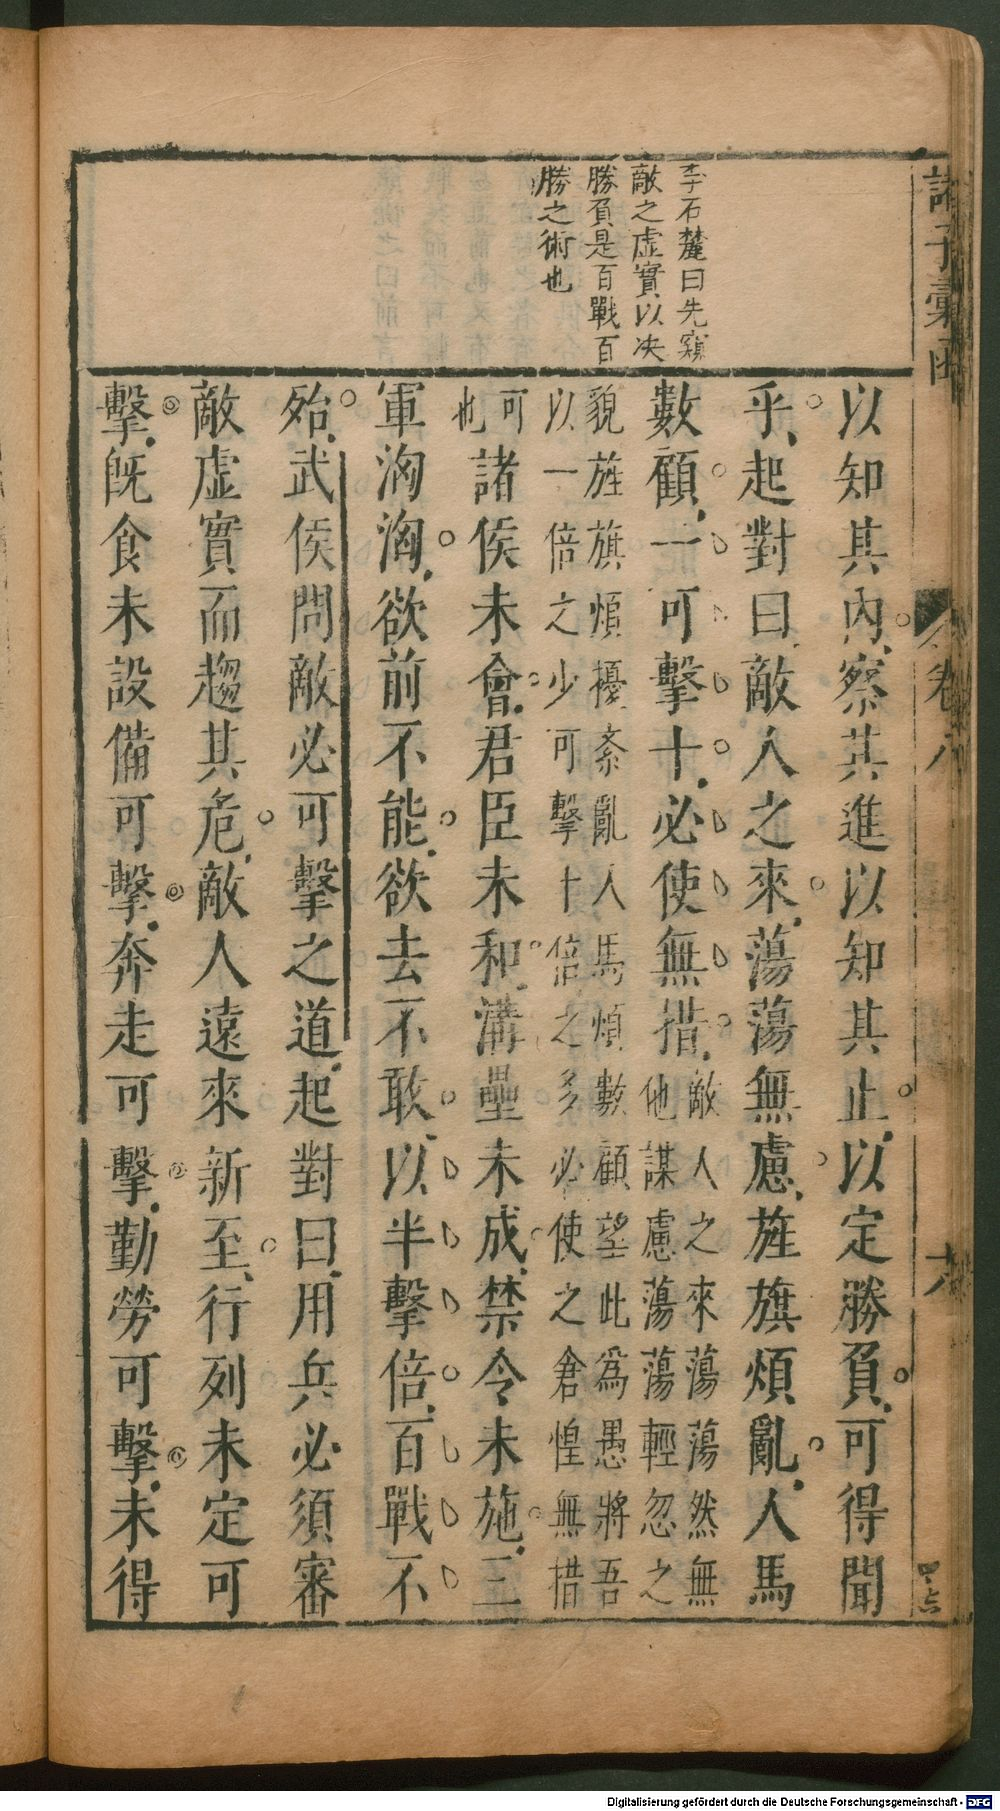 李石麓曰先窺
敵之虛實以决
勝負是百戰百
勝之術也
以知其內察其進以知其止以定勝負可得聞
乎起對曰敵人之來蕩蕩無慮旌旗煩亂人馬
數顧一可擊十必使無措敵人之來蕩蕩然無
他謀慮蕩蕩輕忽之
貌旌旗煩擾紊亂人馬煩數顧望此為愚將吾
以一倍之少可擊十倍之多必使之倉惶無措
可
也
諸侯未會君臣未和溝壘未成禁令未施三
軍洶洶欲前不能欲去不敢以半擊倍百戰不
殆武侯問敵必可擊之道起對曰用兵必須審
敵虛實而趨其危敵人遠來新至行列未定可
擊旣食未設備可擊奔走可擊勤勞可擊未得
諸子彙函
卷八
Digitalisierung gefördert durch die Deutsche Forschungsgemeinschaft - DFG